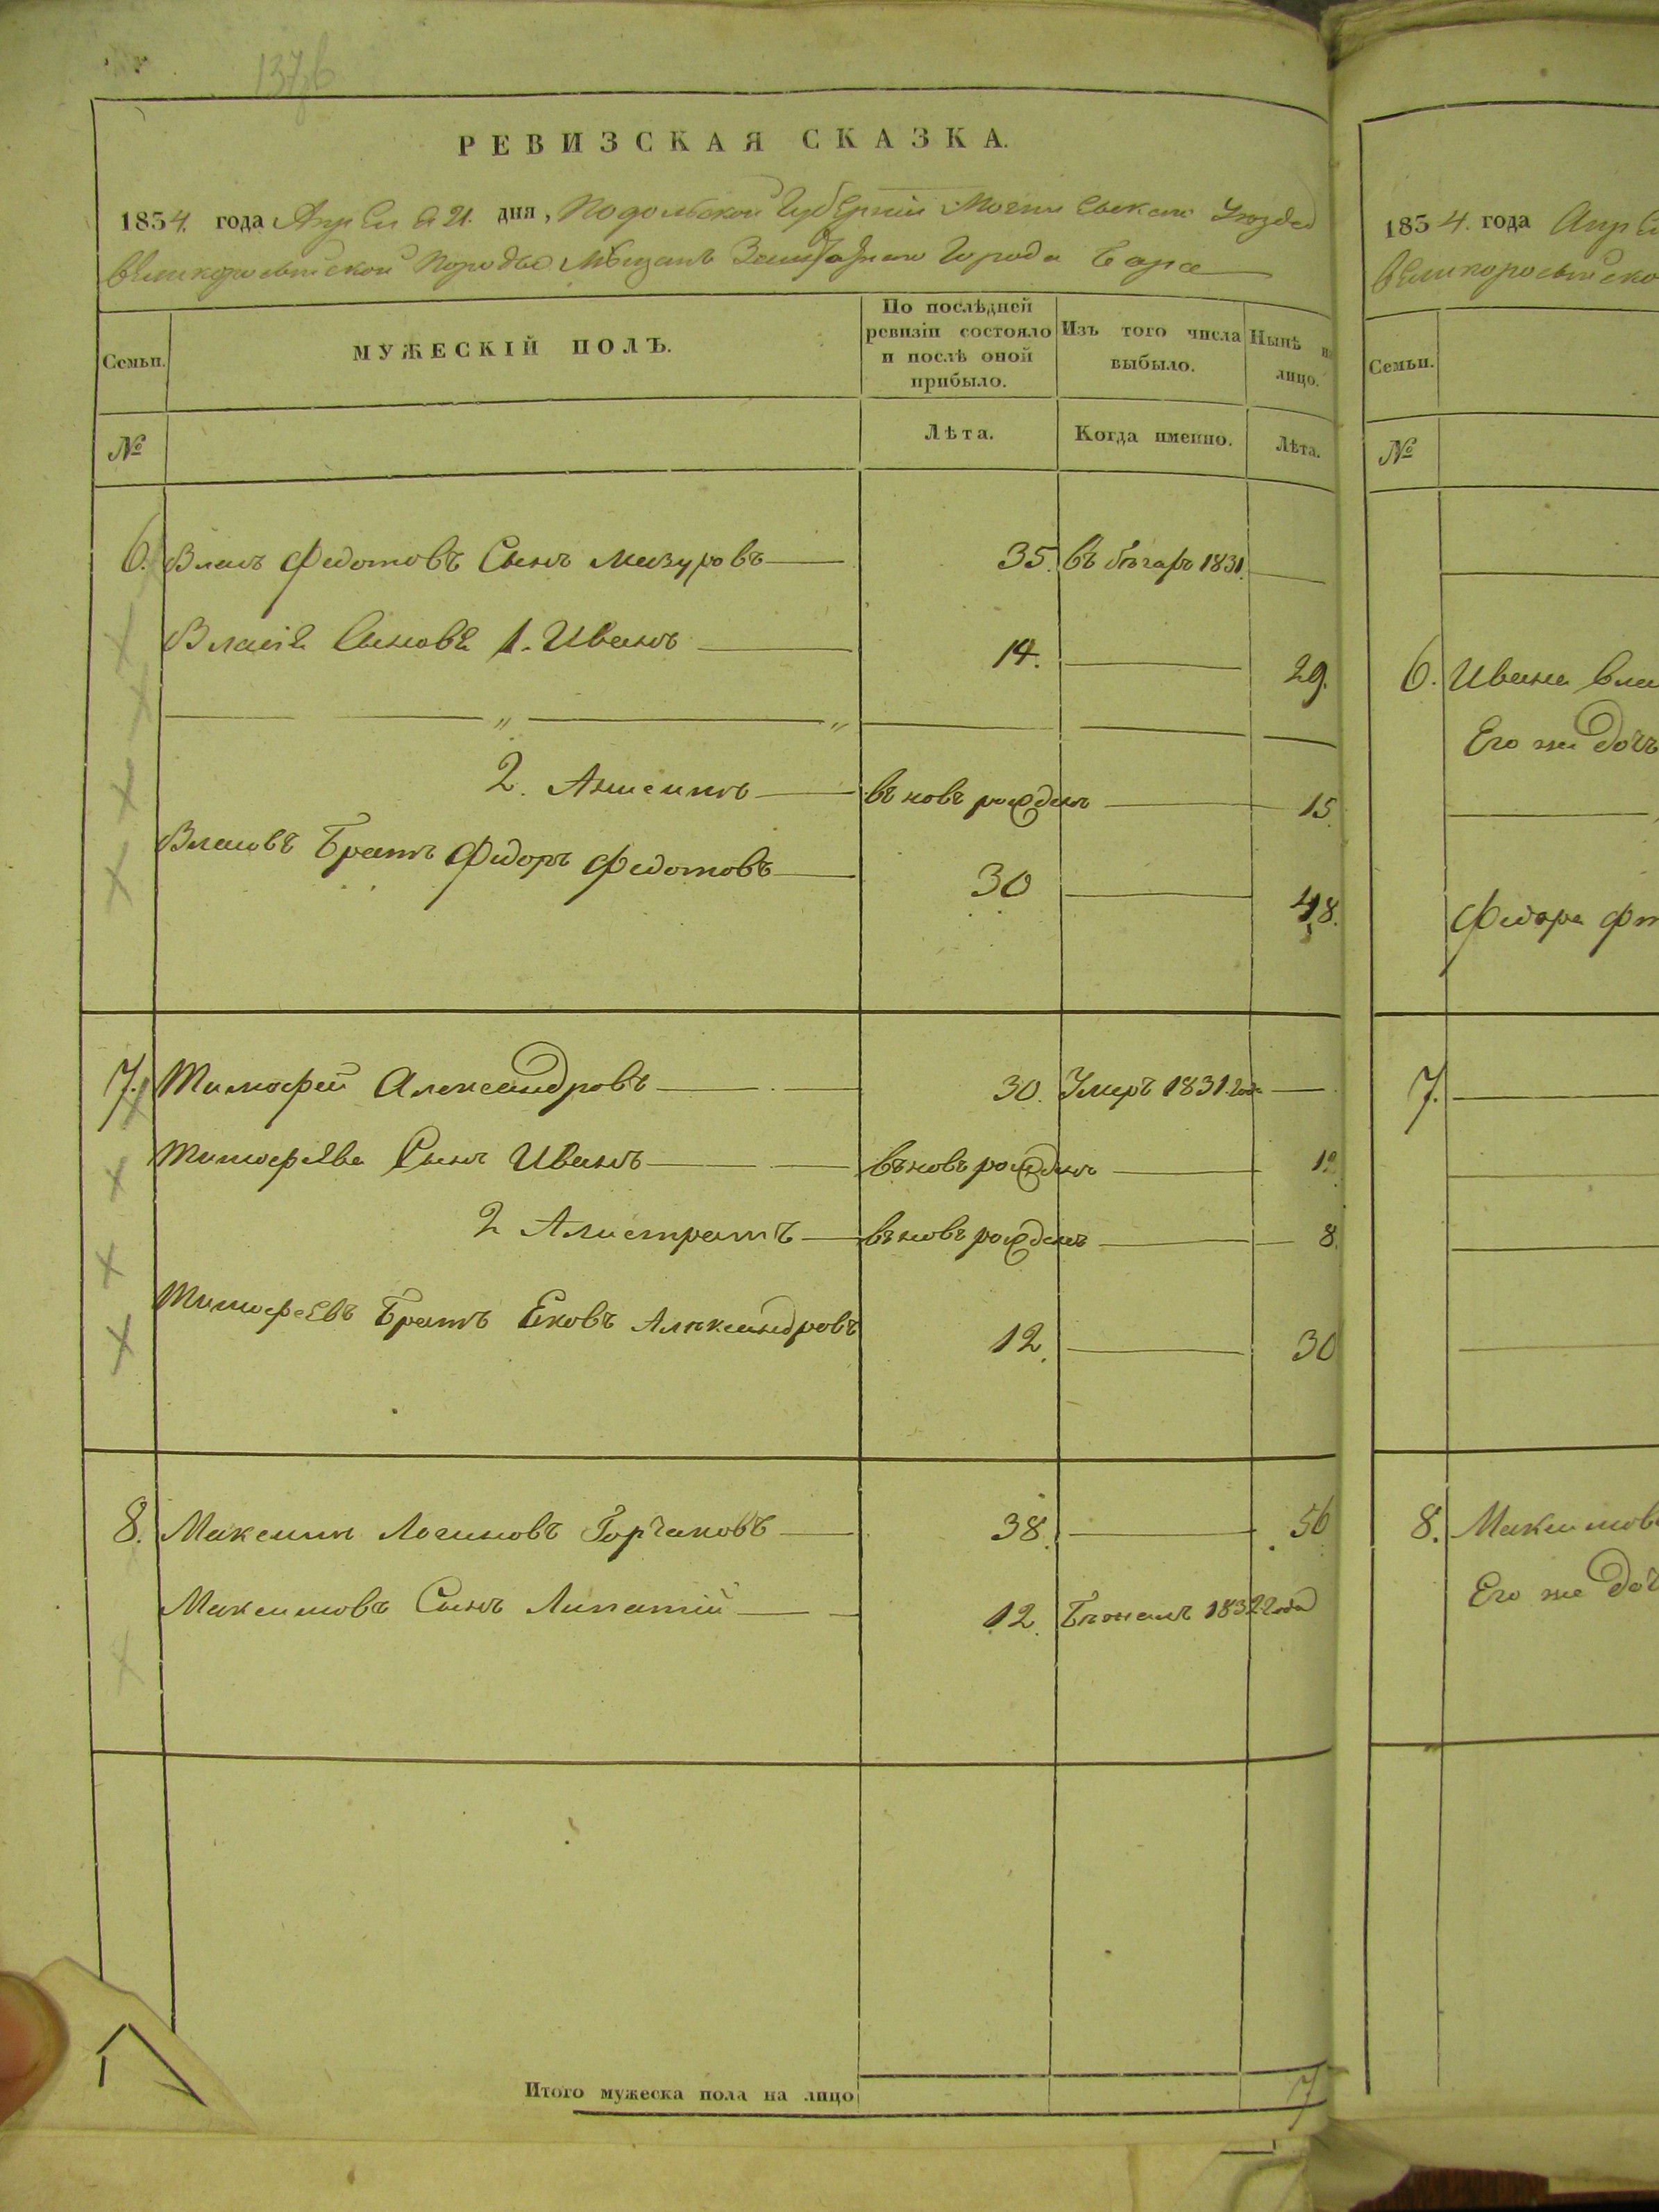 137об
РЕВИЗСКАЯ СКАЗКА.
1834. года Апреля 21. дня, Подольской Губерніи Могилевскаго Уезда
великороссійской породы Мещанъ Заштатнаго Города Бара
Семьи.
МУЖЕСКІЙ ПОЛЪ.
По послѣдней ревизіи состояло и послѣ оной прибыло.
Изъ того числа выбыло.
Нынѣ на лицо.
№
Лѣта.
Когда именно.
Лѣта.
6. Власъ Федотовъ Сынъ Мазуровъ 35. въ бѣгахъ 1831.
Власія Сыновя 1. Иванъ 14. 29.
2. Анисимъ въновь рожденъ 15.
Власовъ Братъ Федоръ Федотовъ 30 48.
7. Тимофей Александровъ 30. Умеръ 1831. года
Тимофѣева Сынъ Иванъ въновь рожденъ
2 Алистратъ въновь рожденъ 8.
Тимофеевъ Братъ Ековъ Алѣксандровъ 12. 30
8. Максимъ Логиновъ Горчаковъ 38. 56
Максимовъ Сынъ Липатій 12. 1832 года
Итого мужеска пола на лицо 7
1834. года
Семьи.
№
6. Ивана
Его же дочь
Федора
7.
8.
Его же